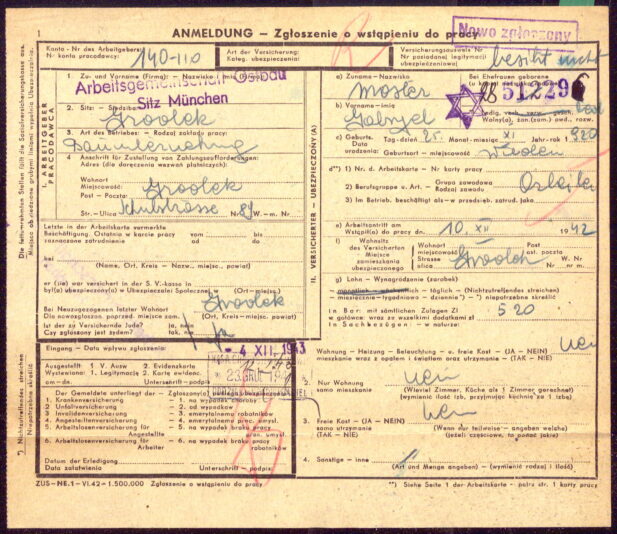 1 ANMELDUNG – Zgłoszenie o wstąpieniu do pracy
Nowo zgłoszony
Konto - Nr des Arbeitgebers
Nr konta pracodawcy:
140-110
Art der Versicherung:
Kateg. ubezpieczenia:
R
Versicherungsausweis Nr
Nr posiadanej legitymacji
ubezpieczeniowej
besitzt nicht
Die fettumrahmten Stellen füllt die Sozialversicherungskasse aus.
Miejsca obwiedzione grubymi liniami wypełnia Ubezpieczalnia.
*) Nichtzutreffendes streichen
Niepotrzebne skreślić
I. ARBEITGEBER
PRACODAWCA
1. Zu- und Vorname (Firma): – Nazwisko i imię (Firma)
Arbeitsgemeinschaft
Sitz München
2. Sitz: – Siedziba
Grodek
3. Art des Betriebes: – Rodzaj zakładu pracy:
4. Anschrift für Zustellung von Zahlungsaufforderungen:
Adres (dla doręczenia wezwań płatniczych):
Wohnort
Miejscowość:
Grodek
Post – Poczta:
Str. – Ulica Schulstrasse Nr 89 W. – m. Nr
Letzte in der Arbeitskarte vermerkte
Beschäftigung. Ostatnio w karcie pracy
zaznaczone zatrudnienie
vom
od
bis
do
bei
(Name, Ort, Kreis – Nazw., miejsc., powiat)
er (sie) war versichert in der S.V.-kasse in
był(a) ubezpieczony w Ubezpieczalni Społecznej
(Ort – miejsc.)
Bei Neuzugezogenen letzter Wohnort
Dla nowozgłoszon. poprzed. miejsce zam.
Grodek
(Ort, Kreis – miejsc., powiat)
Ist der zu Versichernde Jude?
Czy zgłoszony jest żydem?
ja, nein
tak, nie
II. VERSICHERTER – UBEZPIECZONY(A)
a) Zuname – Nazwisko
Moster
Bei Ehefrauen geborene
51229
b) Vorname – imię
Gabryel
led.
c) Geburts- Data
Tag - dzień 25. Monat - miesiąc XI Jahr - rok 1920
urodzenia: Geburtsort – miejscowość
d**) 1) Nr. d. Arbeitskarte – Nr karty pracy
2) Berufsgruppe u. Art – Grupa zawodowa
Rodzaj zawodu
3) Im Betrieb. beschäftigt als – w charakterze
e) Arbeitsantritt am
Wstąpił(a) do pracy dn. 10. XII 1942
f) Wohnsitz
des Versicherten
Miejsce
zamieszkania
ubezpieczonego
Wohnort
miejscowość
Strasse
ulica
Grodek
Post
poczta
g) Lohn – Wynagrodzenie (zarobek)
– monatlich – wöchentlich – täglich – (Nichtzutreffendes streichen)
– miesięcznie – tygodniowo – dziennie – *) – niepotrzebne skreślić
In Bar: mit sämtlichen Zulagen Zl
w gotówce: wraz ze wszelkimi dodatkami zł
5 20
In Sachbezügen: – w naturze:
1. Wohnung – Heizung – Beleuchtung – u. freie Kost – (JA – NEIN)
mieszkanie wraz z opałem i światłem oraz utrzymanie – (TAK – NIE)
nein
2. Nur Wohnung
samo mieszkanie
nein
(Wieviel Zimmer, Küche als 1 Zimmer gerechnet)
(wymienić ilość izb, przyjmując kuchnię za 1 izbę)
3. Freie Kost – (JA – NEIN)
samo utrzymanie
(TAK – NIE)
nein
(Wenn nur teilweise – angeben welche)
(jeżeli częściowe, to podać jakie)
4. Sonstige – inne
(Art und Menge angeben) – (wymienić rodzaj i ilość)
Eingang – Data wpływu zgłoszenia:
- 4 XII. 1943
Ausgestellt 1 V. Ausw 2. Evidenzkarte
Wystawiono: 1. Legitymację 2. Karta evidenc.
am – dn. Unterschrift – podpis
23. GRU. 194
Der Gemeldete unterliegt der – Zgłoszony(a) podlega ubezp.
1. Krankenversicherung 1. na wypadek choroby
2. Unfallversicherung 2. od wypadków
3. Invalidenversicherung 3. emerytalnemu robotników
4. Angestelltenversicherung 4. emerytalnemu prac. umysł.
5. Arbeitslosenversicherung für
Angestellte
5. na wypadek braku pracy
prac. umysł.
6. Arbeitslosenversicherung für
Arbeiter
6. na wypadek braku pracy
robotników
Datum der Erledigung
Data załatwienia
Unterschrift – podpis
ZUS – NE. 1 – VI. 42 – 1.500.000 Zgłoszenie o wstąpieniu do pracy
**) Siehe Seite 1 der Arbeitskarte – patrz str. 1 karty pracy